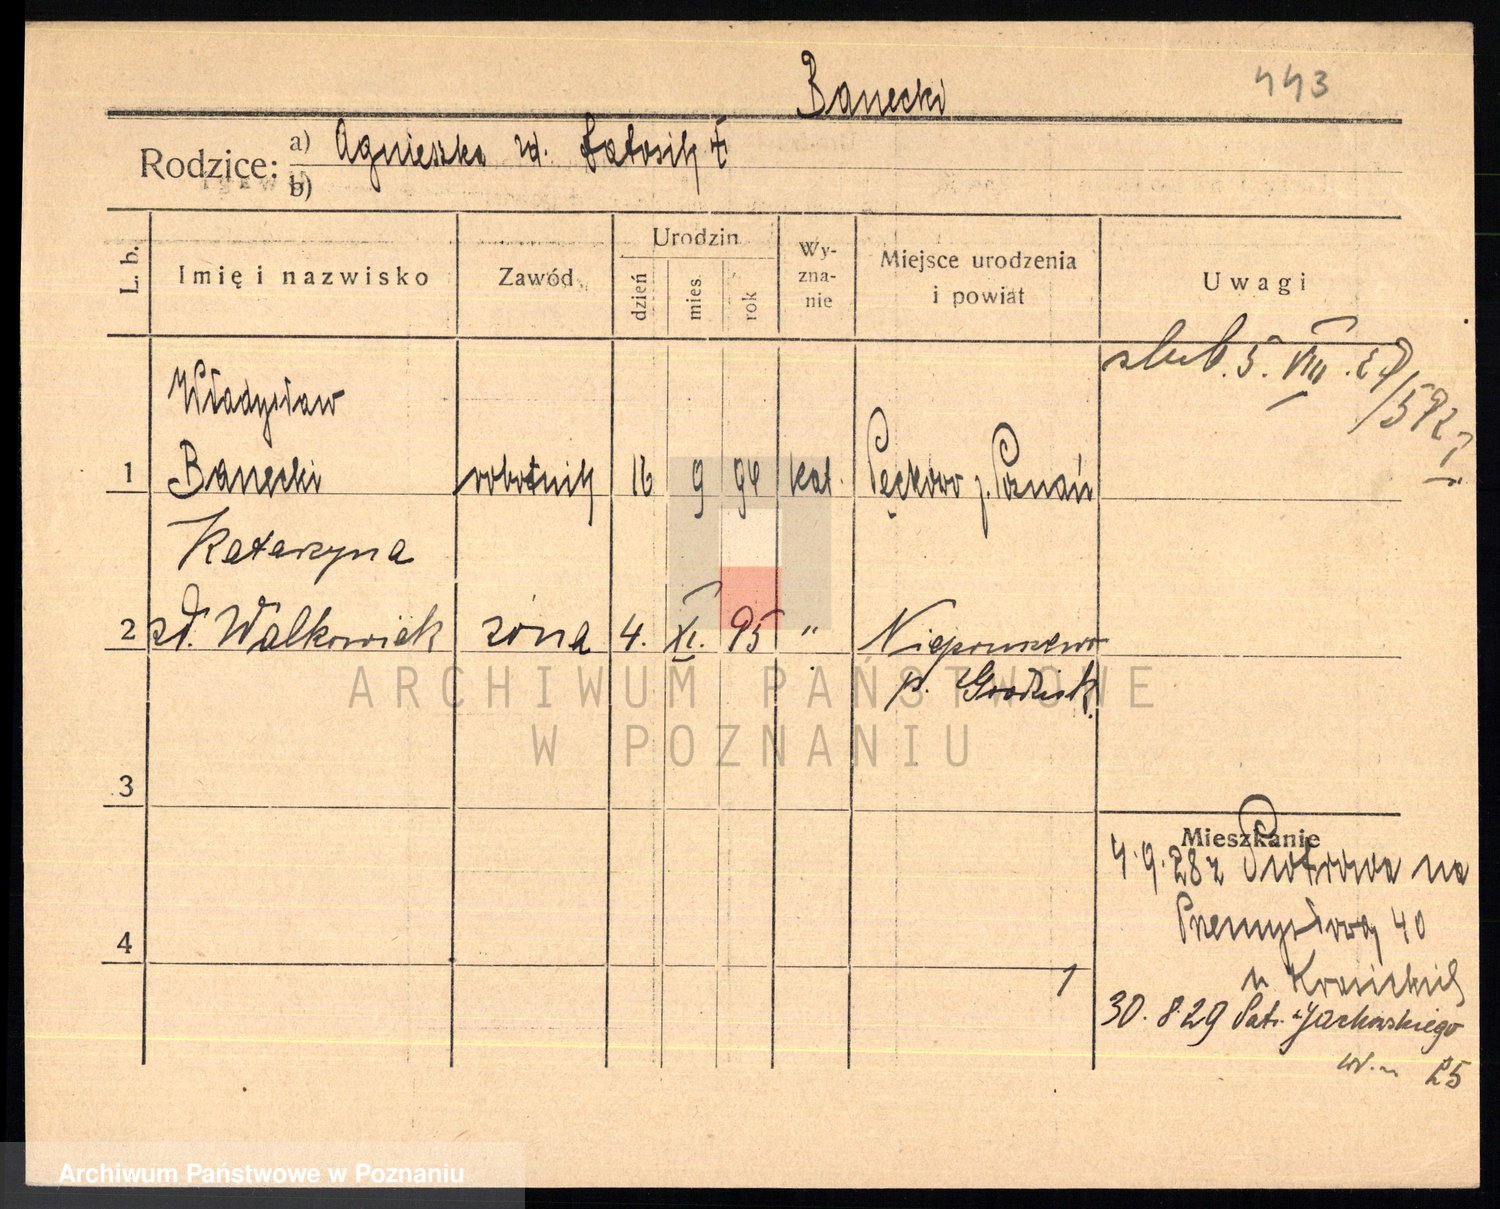 Banecki
443
Rodzice: a) Agnieszka zd.
b)
L. b.
Imię i nazwisko
Zawód
Urodzin
dzień
mies.
rok
Wy-
zna-
nie
Miejsce urodzenia
i powiat
Uwagi
ślub. 5. VIII. 29
Władysław
1 Banecki robotnik 16 9 94 kat. Pęckowo p. Poznań
Katarzyna
2 zd. Walkowiak żona 4. XI. 95 " Niepruszewo
p. Grodzisk
3
Mieszkanie
4.9.28 z Piotrowa na
Przemysłową 40
4
u
30.8.29 Jackowskiego
25
ARCHIWUM PAŃSTWOWE
W POZNANIU
Archiwum Państwowe w Poznaniu